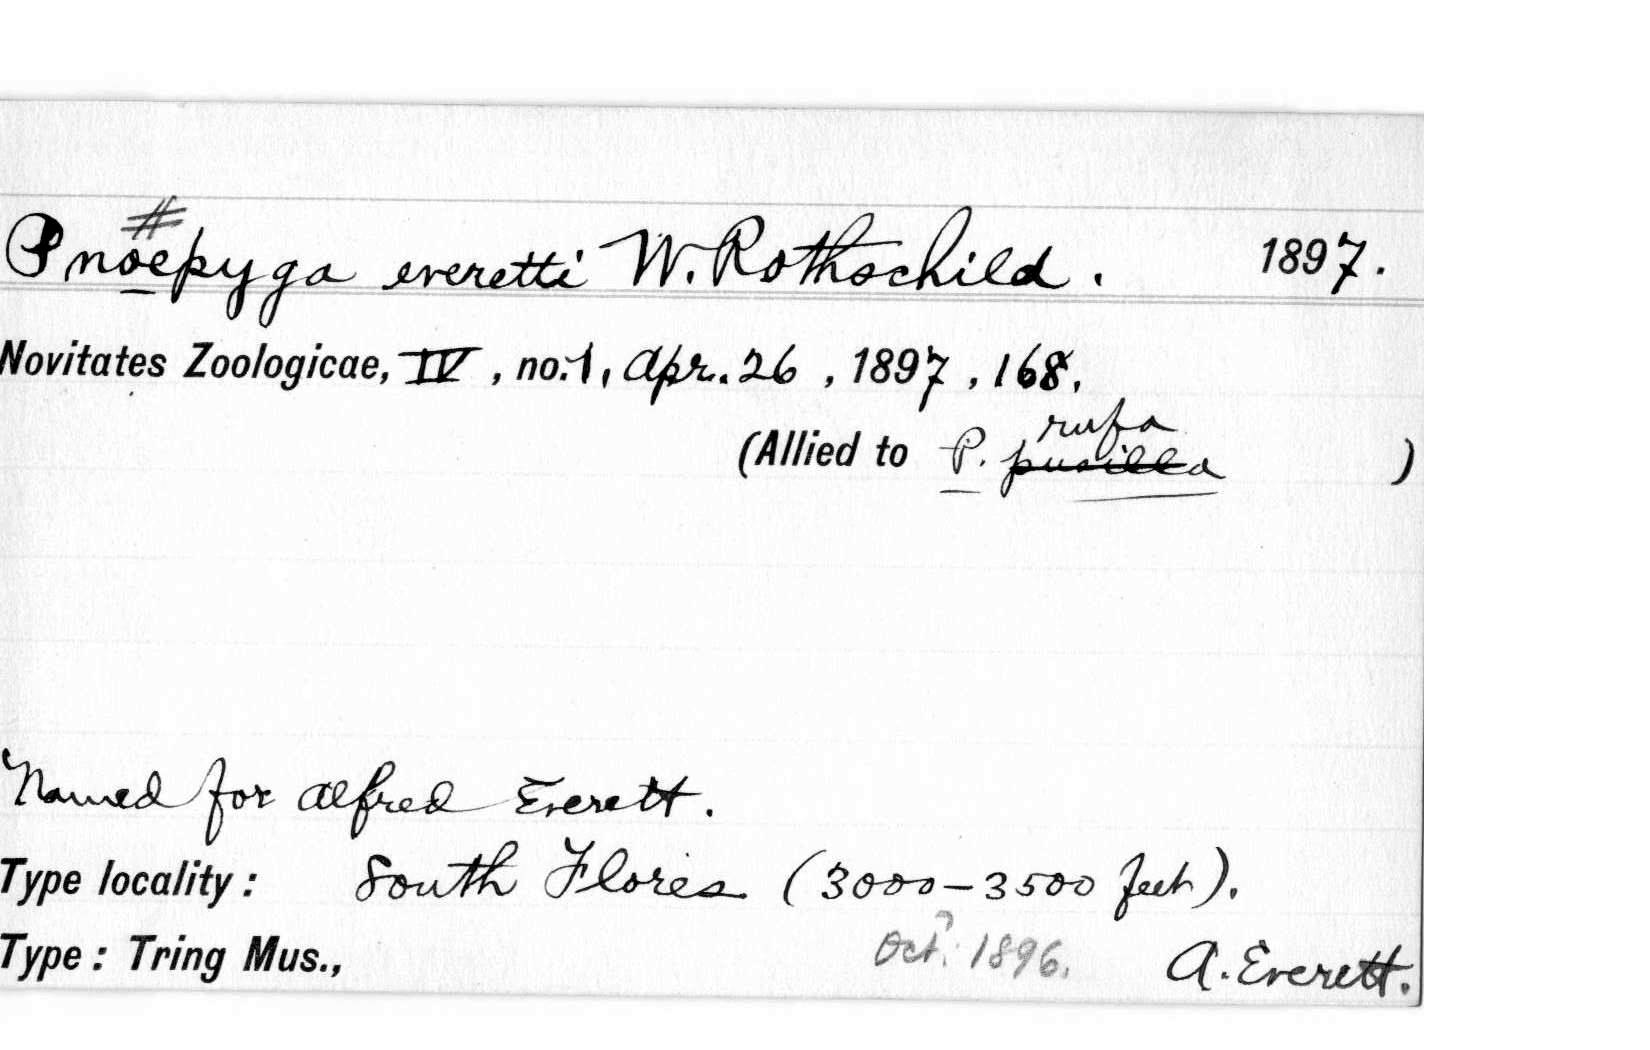 #
Pnoepyga everetti W. Rothschild. 1897.
Novitates Zoologicae, IV, no. 1, Apr. 26, 1897, 168.
rufa
(Allied to P. pusilla )
Named for Alfred Everett.
Type locality: South Flores (3000-3500 feet).
Type: Tring Mus., Oct.? 1896. A. Everett.